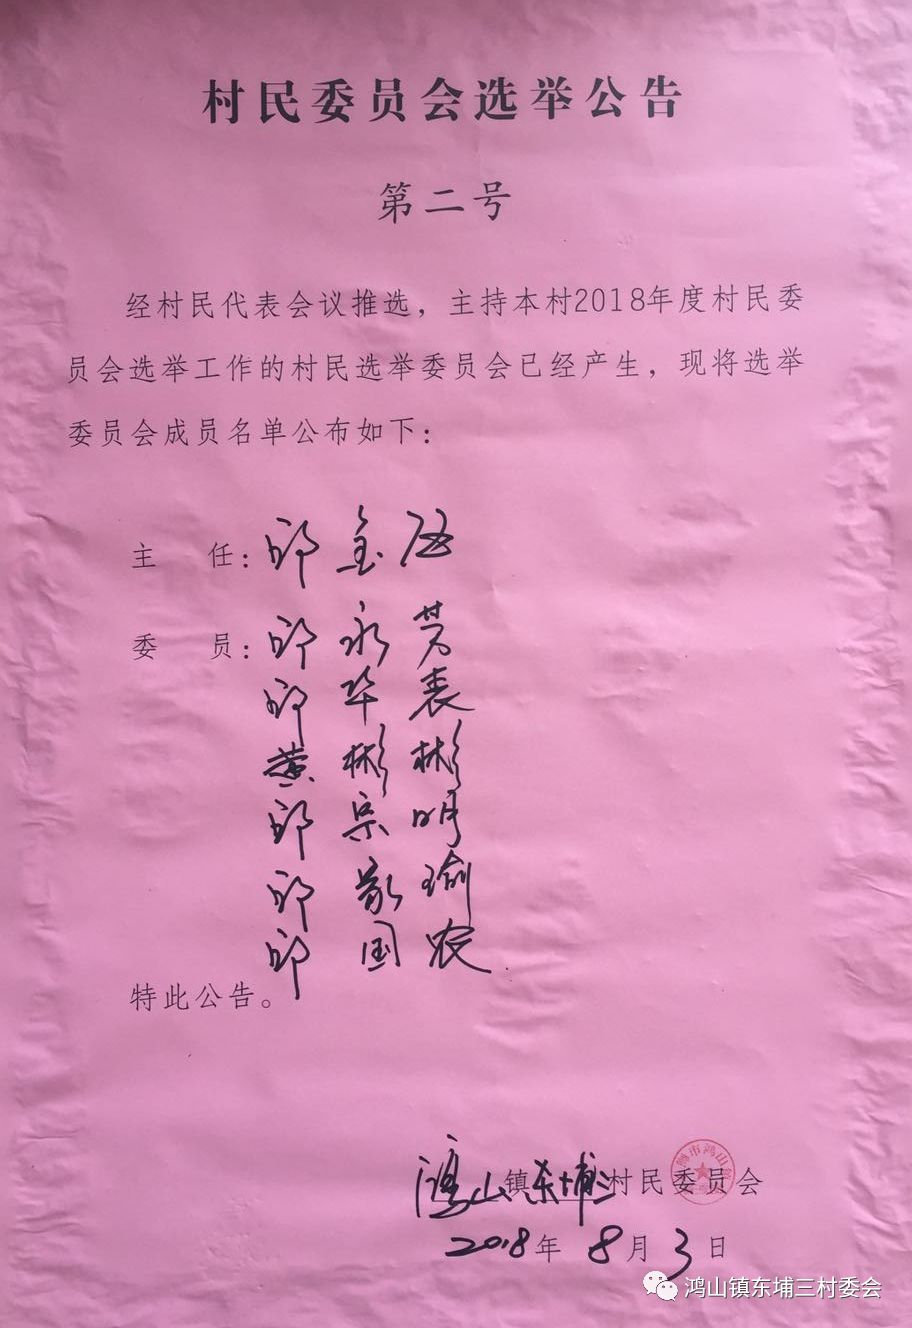 村民委员会选举公告
第二号
经村民代表会议推选，主持本村2018年度村民委
员会选举工作的村民选举委员会已经产生，现将选举
委员会成员名单公布如下：
主 任：邱金
委 员：邱永芳
邱华表
黄彬彬
邱宗明
邱 瑜
邱国农
特此公告。
鸿山镇东埔三村民委员会
2018年8月3日
鸿山镇东埔三村委会